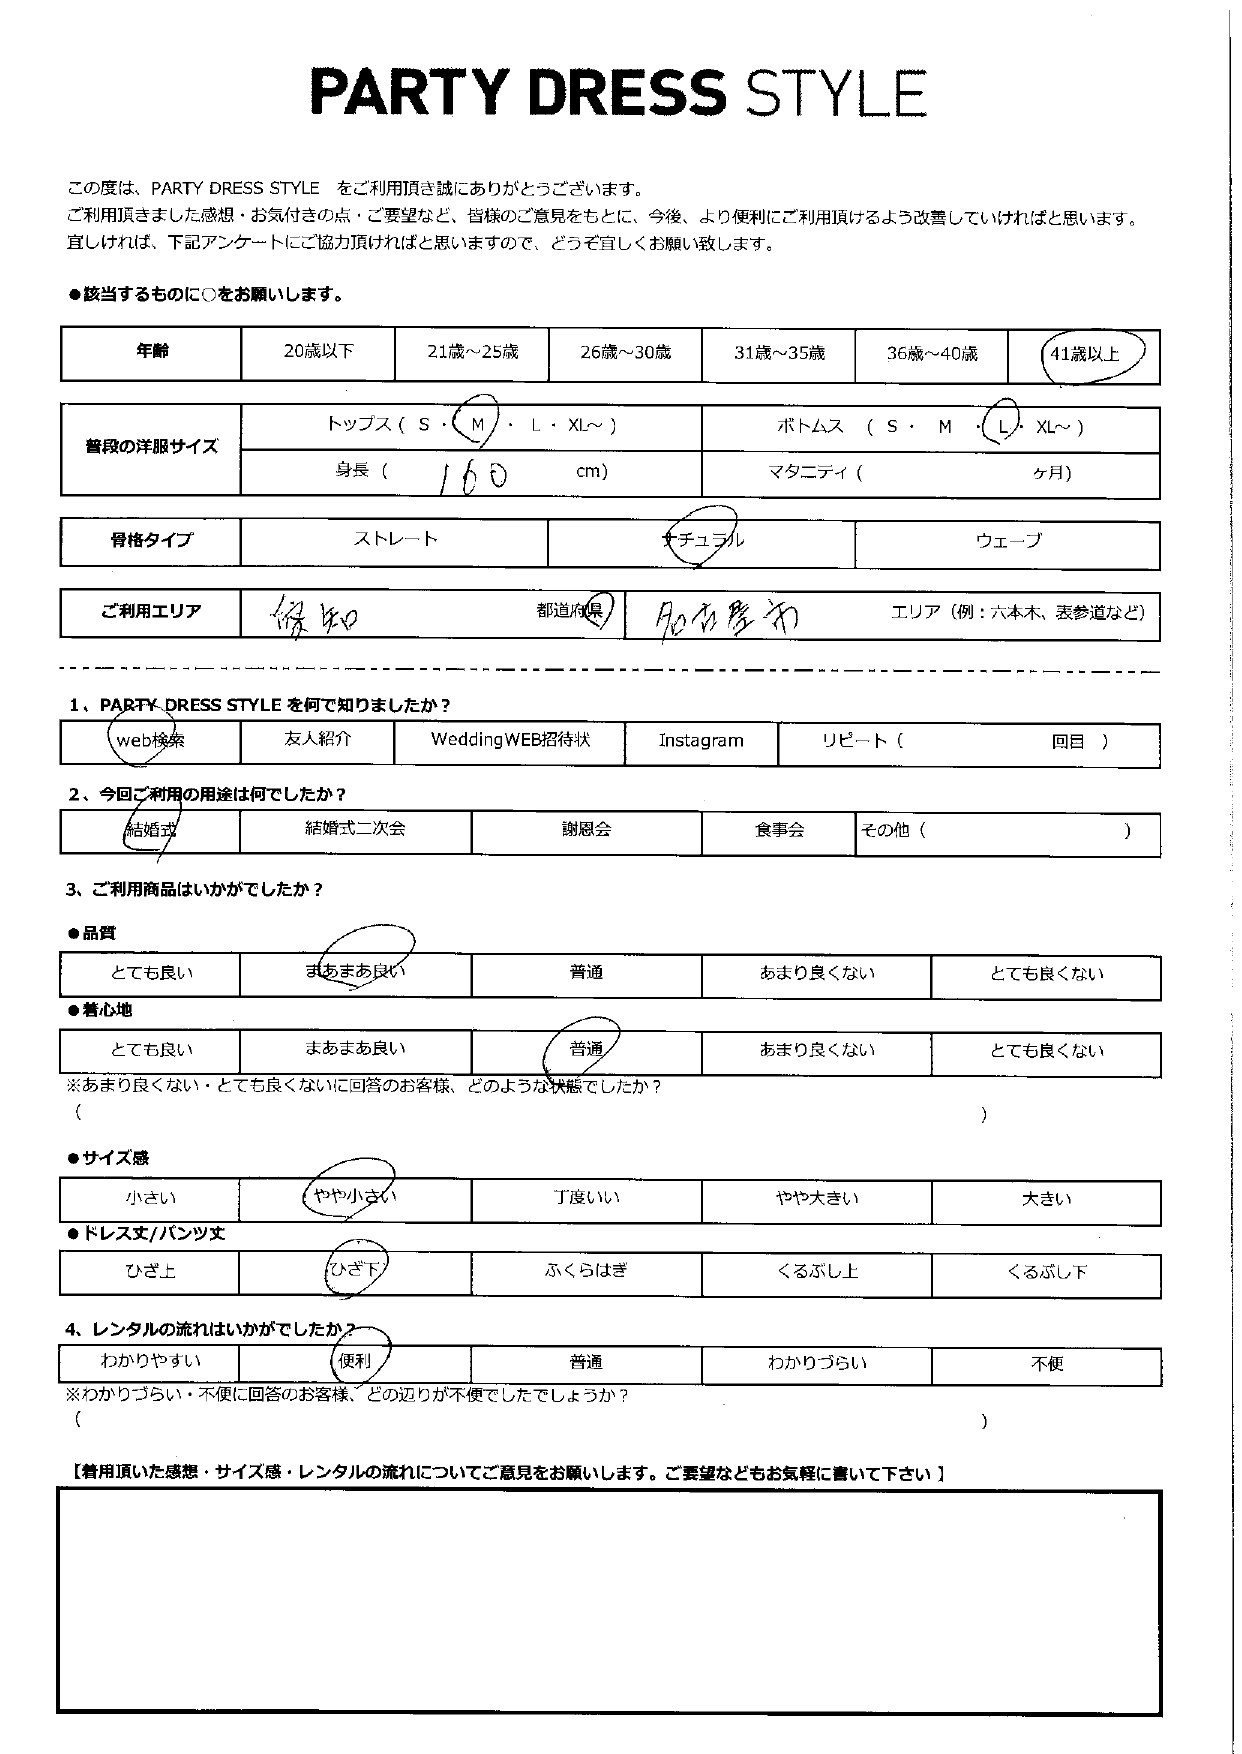 PARTY DRESS STYLE
この度は、PARTY DRESS STYLE　をご利用頂き誠にありがとうございます。
ご利用頂きました感想・お気付きの点・ご要望など、皆様のご意見をもとに、今後、より便利にご利用頂けるよう改善していければと思います。
宜しければ、下記アンケートにご協力頂ければと思いますので、どうぞ宜しくお願い致します。
●該当するものに○をお願いします。
年齢 20歳以下 21歳～25歳 26歳～30歳 31歳～35歳 36歳～40歳 41歳以上
普段の洋服サイズ トップス ( S ・ M ・ L ・ XL～ ) ボトムス ( S ・ M ・ L ・ XL～ )
身長 ( 160 cm) マタニティ ( ヶ月)
骨格タイプ ストレート ナチュラル ウェーブ
ご利用エリア 知 都道府県 名古屋市 エリア（例：六本木、表参道など）
1、PARTY DRESS STYLE を何で知りましたか？
web検索 友人紹介 WeddingWEB招待状 Instagram リピート ( 回目 )
2、今回ご利用の用途は何でしたか？
結婚式 結婚式二次会 謝恩会 食事会 その他 ( )
3、ご利用商品はいかがでしたか？
●品質
とても良い まあまあ良い 普通 あまり良くない とても良くない
●着心地
とても良い まあまあ良い 普通 あまり良くない とても良くない
※あまり良くない・とても良くないに回答のお客様、どのような状態でしたか？
( )
●サイズ感
小さい やや小さい 丁度いい やや大きい 大きい
●ドレス丈/パンツ丈
ひざ上 ひざ下 ふくらはぎ くるぶし上 くるぶし下
4、レンタルの流れはいかがでしたか？
わかりやすい 便利 普通 わかりづらい 不便
※わかりづらい・不便に回答のお客様、どの辺りが不便でしたでしょうか？
( )
【着用頂いた感想・サイズ感・レンタルの流れについてご意見をお願いします。ご要望などもお気軽に書いて下さい】